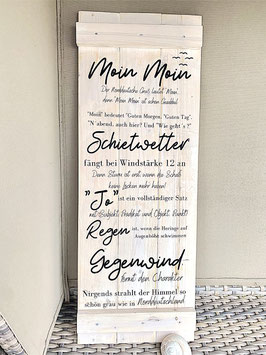 Moin Moin
Der Norddeutsche Gruß lautet "Moin",
denn Moin Moin ist schon Gesabbel.
"Moin" bedeutet "Guten Morgen, "Guten Tag",
"N'abend, auch hier? Und "Wie geht's ?"
Schietwetter
fängt bei Windstärke 12 an
Denn Sturm ist erst wenn die Schafe
keine Locken mehr haben!
"Jo" ist ein vollständiger Satz
mit Subjekt, Prädikat und Objekt. Punkt!
Regen ist, wenn die Heringe auf
Augenhöhe schwimmen
Gegenwind
formt den Charakter
Nirgends strahlt der Himmel so
schön grau wie in Norddeutschland